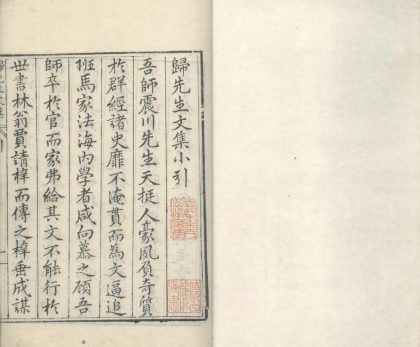 歸先生文集小引
吾師震川先生天挺人豪夙負奇質
於群經諸史靡不淹貫而為文逼追
班馬家法海內學者咸向慕之顧吾
師卒於官而家弗給其文不能行於
世書林翁賈請梓而傳之梓垂成謀